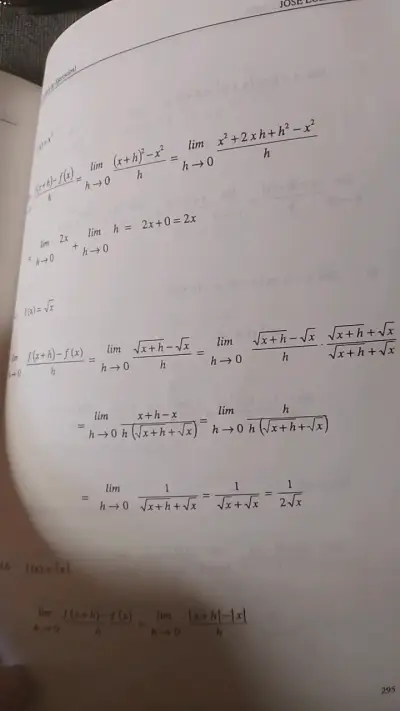 lim h→0 (f(x+h)−f(x))/h = lim h→0 ((x+h)²−x²)/h = lim h→0 (x²+2xh+h²−x²)/h
= lim h→0 2x + lim h→0 h = 2x+0=2x
f(x)=√x
lim h→0 (f(x+h)−f(x))/h = lim h→0 (√(x+h)−√x)/h = lim h→0 (√(x+h)−√x)/h · (√(x+h)+√x)/(√(x+h)+√x)
= lim h→0 (x+h−x)/(h(√(x+h)+√x)) = lim h→0 h/(h(√(x+h)+√x))
= lim h→0 1/(√(x+h)+√x) = 1/(√x+√x) = 1/(2√x)
lim h→0 (f(x+h)−f(x))/h = lim h→0 (|x+h|−|x|)/h
295